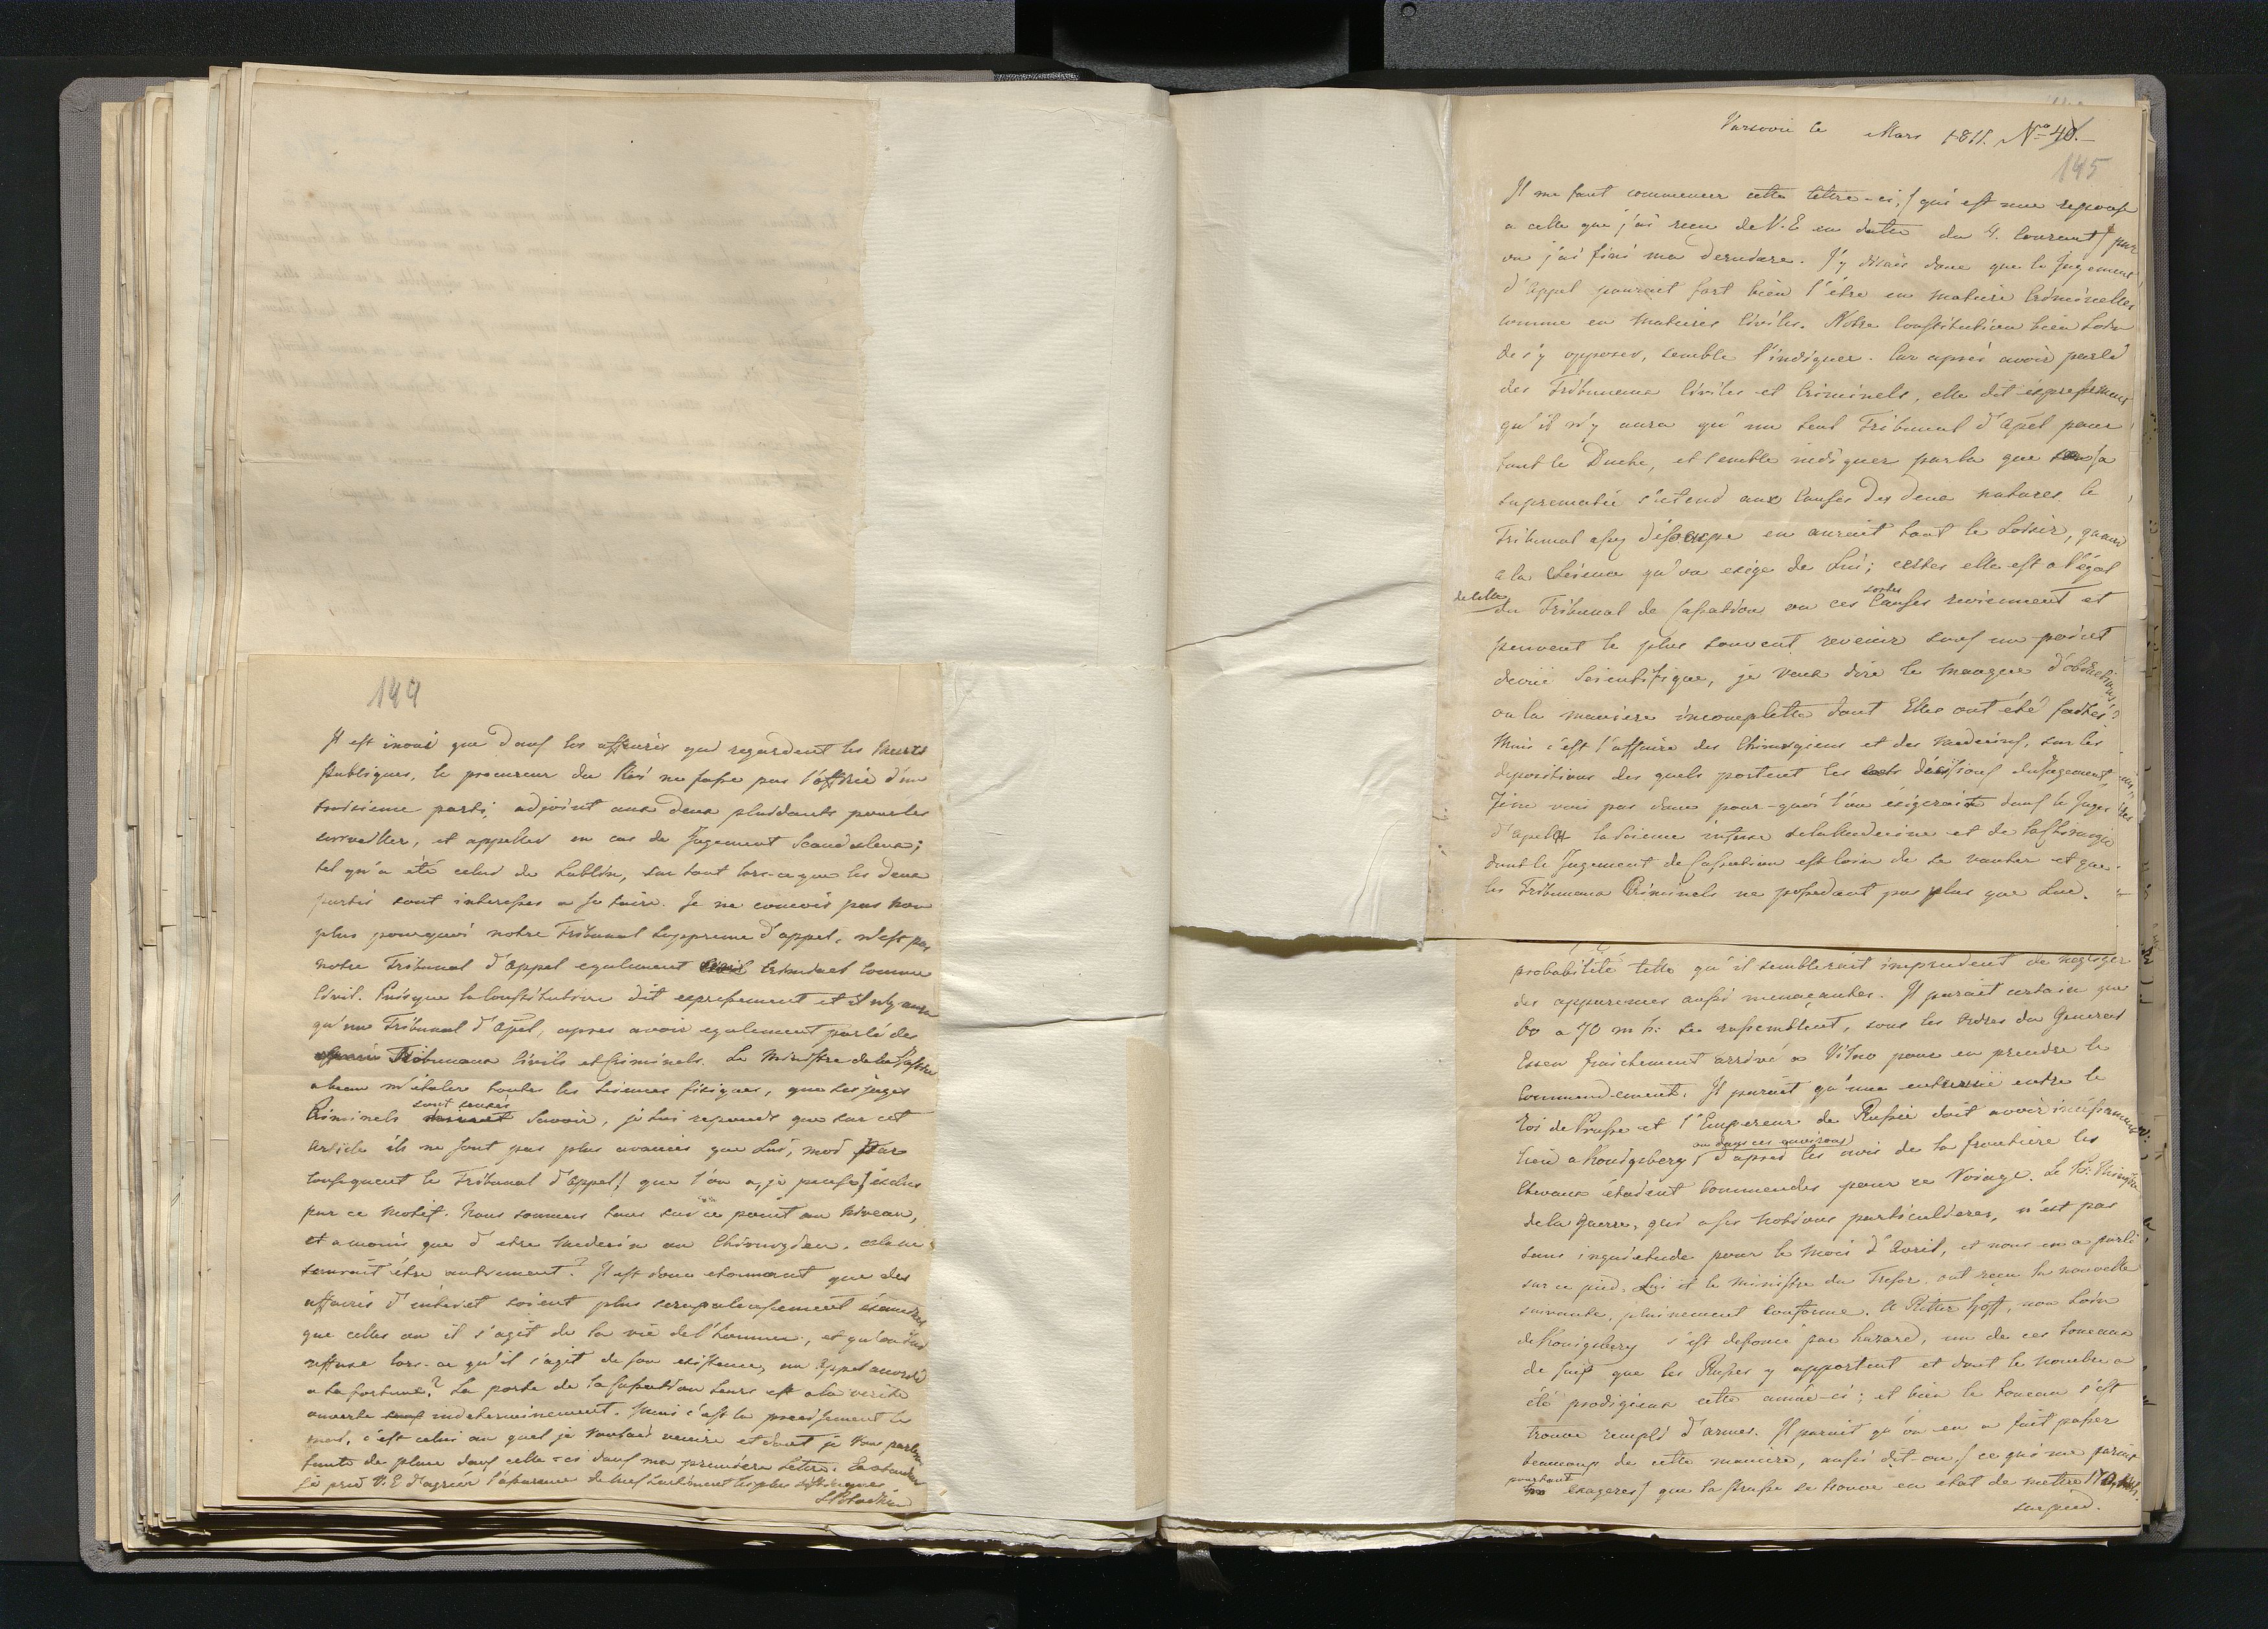 144
Il est inoui que dans les affaires qui regardent les
Publiques, le procureur du Roi ne fasse pas l'office d'un
troisieme parti, adjoint aux deux plaidants pour les
surveiller, et appeller en cas de Jugement Scandaleux;
tel qu'a été celui de Lublin, sur tout lors-ce que les deux
partis sont interessés a se taire. Je ne conçois pas non
plus pourquoi notre Tribunal Suppreme d'appel, n'est pas
notre Tribunal d'Appel egalement Criminel comme
Civil. Puisque la Constitution dit expressement et il n'y aura
qu'un Tribunal d'Apel, apres avoir egalement parlé des
Tribunaux Civils et Criminels. Le Ministre de la Justice
a beau m'étaler toutes les Siences fisiques, que les juges
Criminels sont censés Savoir, je lui reponds que sur cet
Article ils ne sont pas plus avancés que Lui, moi par
Consequent le Tribunal d'Appel/ que l'on a, je pense/ exclus
par ce Motif. Nous sommes tous sur ce point au Niveau,
et amonis que d'etre Medecin ou Chirurgien. cela ne
saurait être autrement? Il est donc etonnant que des
affaires d'interet soient plus scrupuleusement éxaminées
que celles ou il s'agit de la vie de l'homme, et qu'on lui
reffuse lors-ce qu'il s'agit de son existence, un Appel accordé
a la fortune? La porte de la Cassation leurs est a la verité
ouverte indeterminement. Mais c'est la precisement le
mal, c'est celui au quel je voulais venire et dont je Vous parlerai
faute de place dans celle-ci dans ma premiere Lettre. En attendant
je prie V.E d'agréer l'assurance de mes Sentiments les plus distingués
Varsovie le Mars 1811. Nro 40.
145
Il me faut commencer cette lettre-ci,/ qui est une reponse
a celle que j'ai recu de V.E en datte du 4. Courrent/ par
ou j'ai fini ma derniere. J'y disais donc que le Jugement
d'Appel pourait fort bien l'être en matiere Criminelles
comme en Matieres Civiles. Notre Constitution bien Loin
de s'y opposer, semble l'indiquer. Car après avoir parlé
des Tribunaux Civiles et Criminels, elle dit éxpressement
qu'il n'y aura qu'un seul Tribunal d'Apél pour
tout le Duché, et semble indiquer parla que sa
suprematie s'etend aux Causes des deux natures. le
Tribunal assez désocupe en aurait tout le Loisir, quand
a la Sience qu'on exige de Lui; certes elle est a l'égal
de celle du Tribunal de Cassation ou ces sortes Causes reviennent et
peuvent le plus souvent revenir sous un point
Scientifique, je veux dire le manque d'obductions,
ou la maniere incomplette dont Elles ont été faites.
Mais c'est l'affaire des Chirurgiens et des Medecins, sur les
depositions des quels portent les décisions du Jugement
Je ne vois pas donc pour-quoi l'on éxigerait dans le Juges
d'Apel la Sience infuse de la Medecine et de la Chirurgie
dont le Jugement de Cassation est loin de se vanter et que
les Tribunaux Criminels ne possedant pas plus que Lui.
probabilité telle qu'il semblerait imprudent de negliger
des apparences aussi menaçantes. Il parait certain que
60 a 70 m h: se rassemblent, sous les Ordres du General
Essen fraichement arrivé a Vilno pour en prendre le
Commendement. Il parait qu'une entrevüe entre le
Roi de Prusse et l'Empereur de Russie doit avoir incessament
lieu a Konigsberg/ ou dans ces environs/ d'après les avis de la frontiere les
Chevaux étaient Commendés pour ce Voiage. Le Pr: Ministre
de la Guerre, qui a ses Notions particulieres, n'est pas
sans inquiétude pour le Mois d'Avril, et nous en a parlé
sur ce pied. Lui et le Ministre du Tresor ont reçu la nouvelle
suivante, pleinement conforme. A Ritter hoff, non Loin
de Konigsberg s'est defoncé par hazard, un de ces toneaux
de suif que les Russes y apportent et dont le nombre a
été prodigieux cette année-ci; et bien le toneau s'est
trouvé rempli d'armes. Il parait qu'on en a fait passer
beaucoup de cette maniere, aussi dit-on,/ ce qui me parait
pourtant exageré/ que la Prusse se trouve en etat de mettre
sur pied.